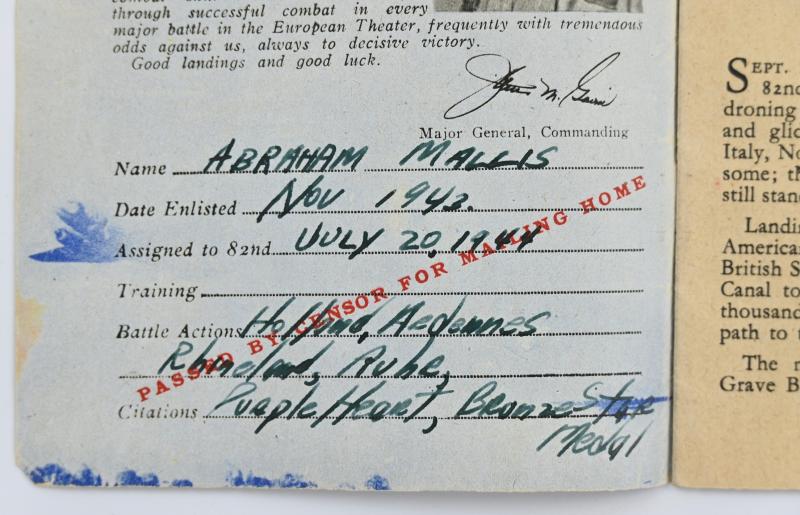 through successful combat in every
major battle in the European Theater, frequently with tremendous
odds against us, always to decisive victory.
Good landings and good luck.
James M. Gavin
Major General, Commanding
Name ABRAHAM MALLIS
Date Enlisted Nov 1942.
Assigned to 82nd JULY 20, 1944
Training
Battle Actions Holland, Ardennes
Rhineland, Ruhr,
Citations Purple Heart, Bronze Star
Medal
PASSED BY CENSOR FOR MAILING HOME
SEPT.
82nd
droning
and glid
Italy, No
some; th
still stand
Landi
American
British S
Canal to
thousand
path to
The
Grave B